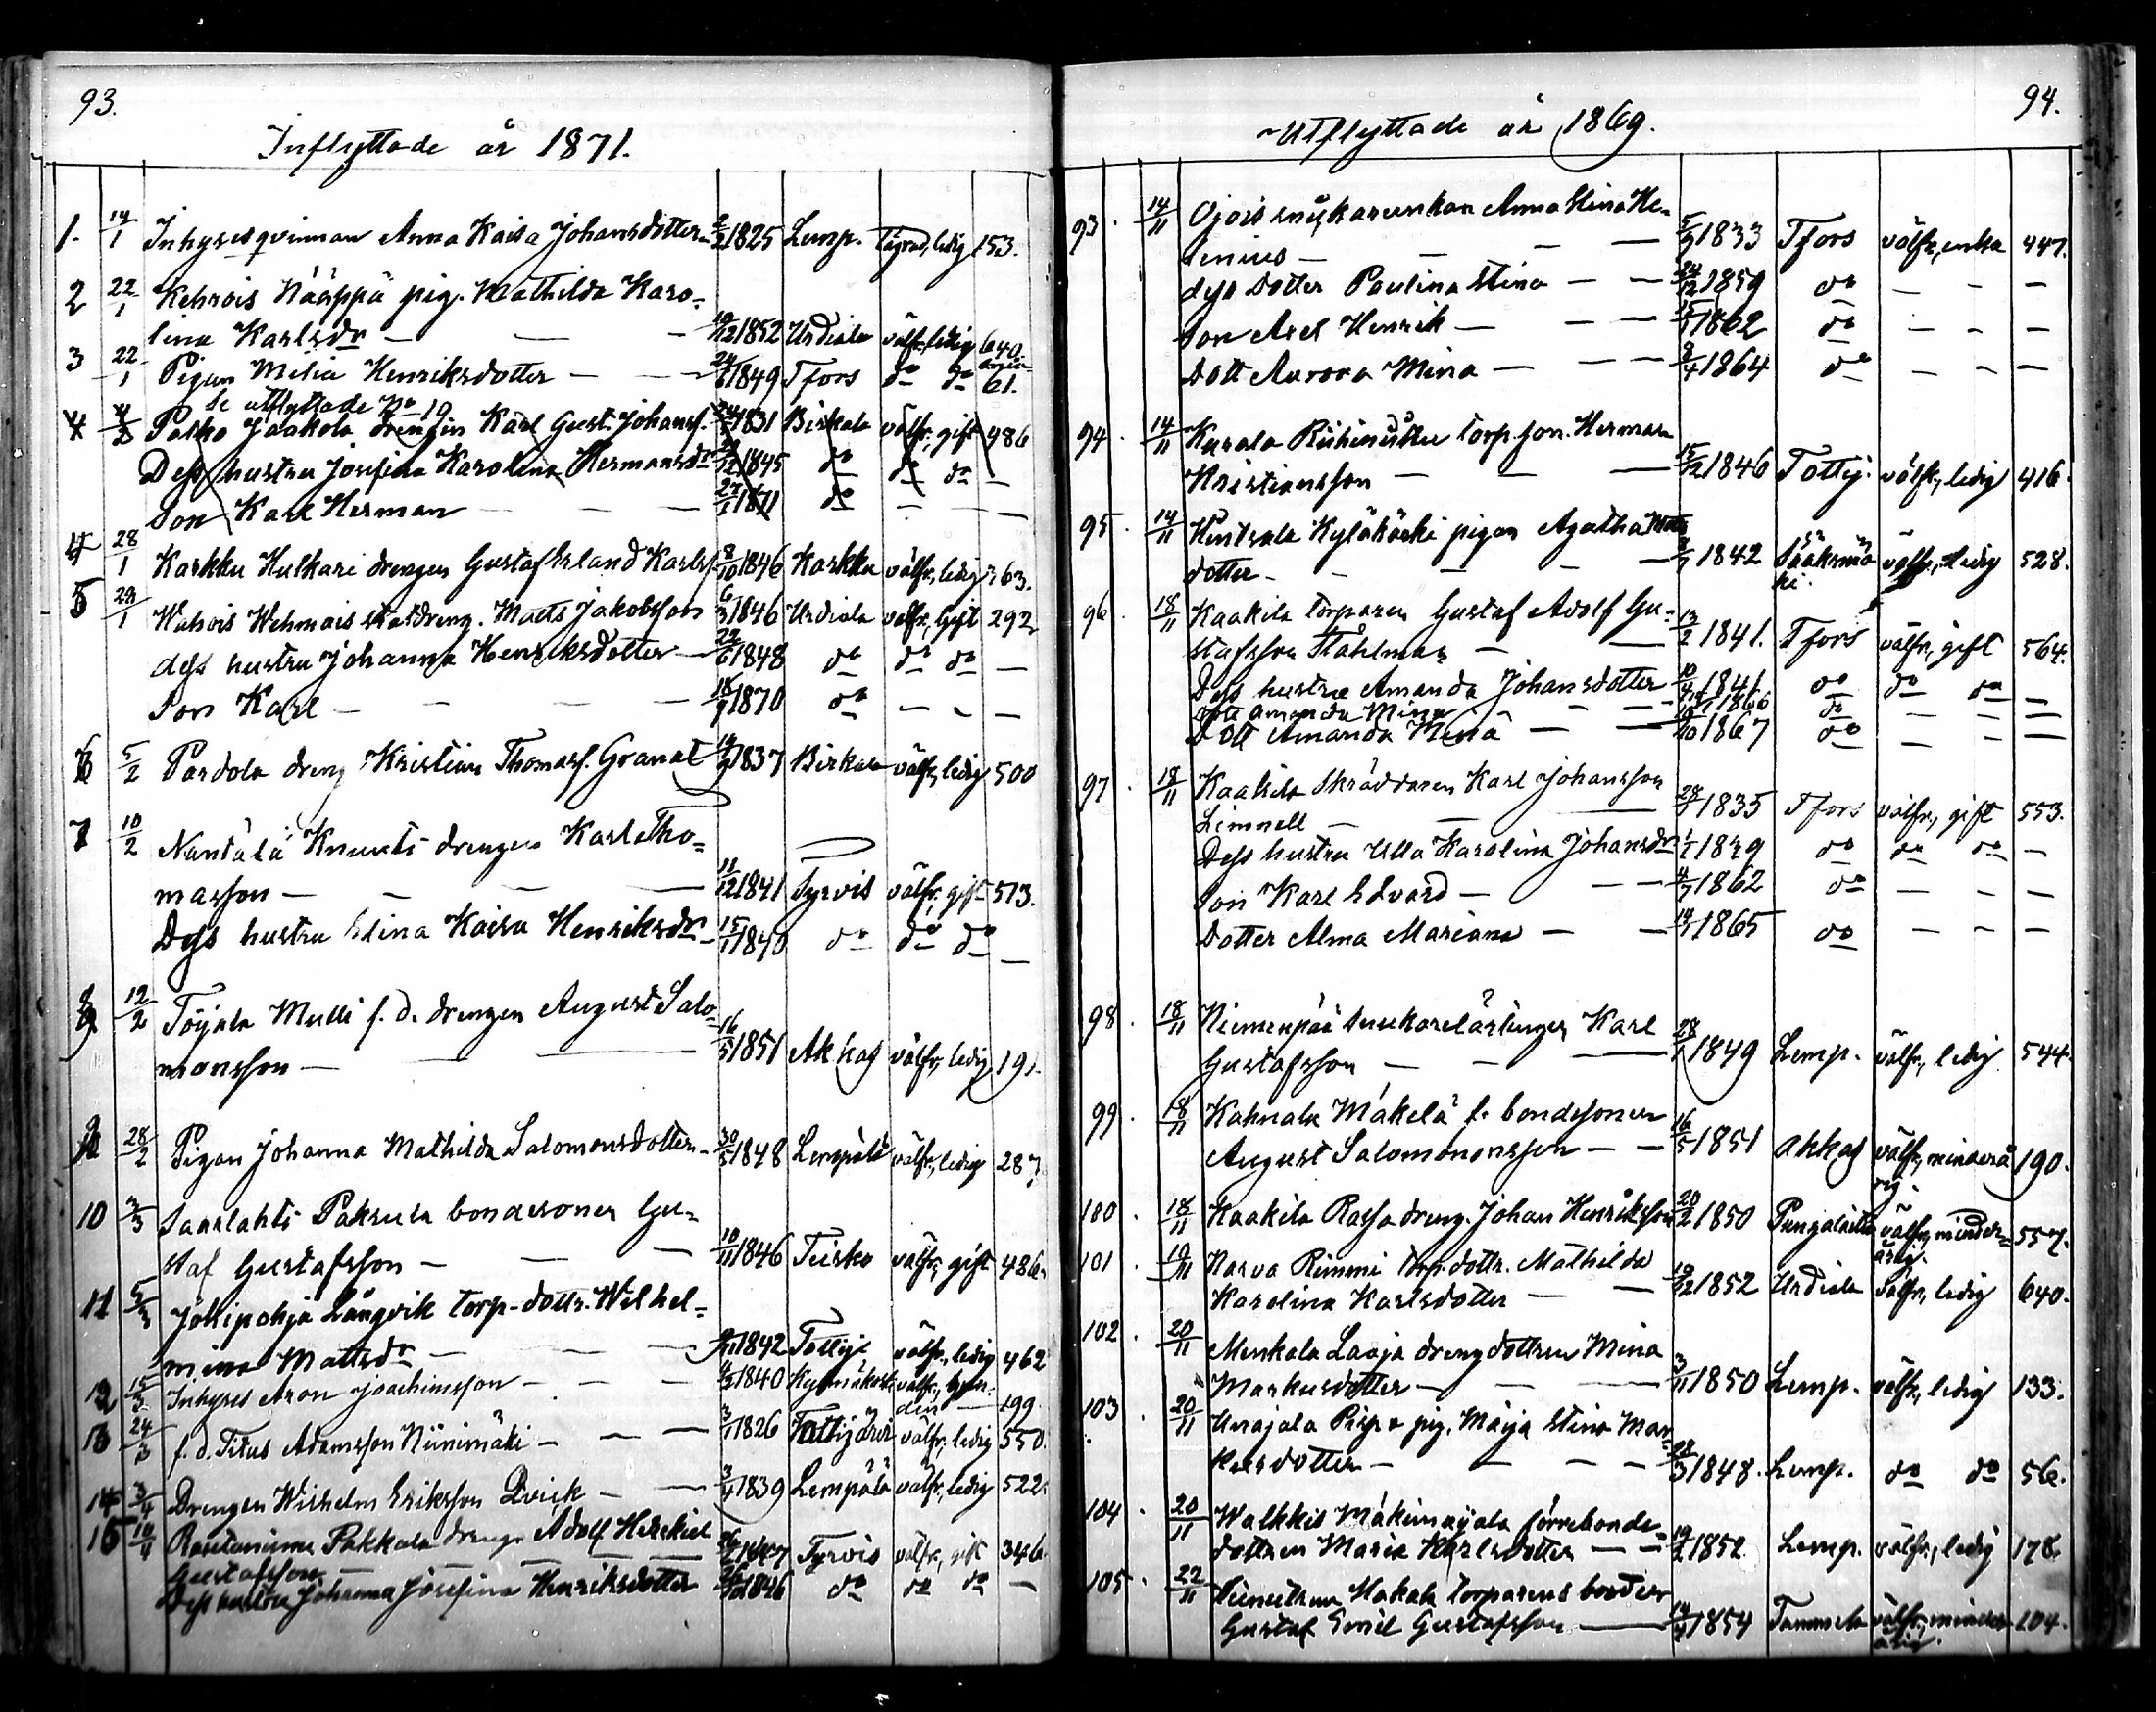 93.
Inflyttade år 1871.
1. 14/1 Inhysesqvinnan Anna Kaisa Johansdotter 2/2 1825 Lemp. ledig 153.
2 22/1 Kehrois Nääppä pig. Mathilda Karo-
lina Karlsdr — — 19/12 1852 Urdiala välfr, ledig 640.
3 22/1 Pigan Milia Henriksdotter — — 24/6 1849 Tfors do do 61.
Se utflyttade No 19
4 Palko Jaakola drengen Karl Gust. Johanss. 1831 Birkala välfr, gift 486
Dess hustru Josefina Karolina Hermansdr 1845 do do do —
Son Karl Herman — — — 27/1 1871 do — —
4 28/1 Karkku Hulkari drengen Gustaf Erland Karlss. 8/10 1846 Karkku välfr, ledig 363.
5 28/1 Wahois Wehmais statdreng. Matts Jakobsson 6/3 1846 Urdiala välfr, gift 292
dess hustru Johanna Henriksdotter — 22/6 1848 do do do —
Son Karl — — — 18/9 1870 do — — —
6 5/2 Pardola dreng Kristian Thomass. Granat 1837 Birkala välfr, ledig 500
7 10/2 Nantälä Knuuti drengen Karl Tho-
masson — — — 11/12 1841 Tyrvis välfr, gift 513.
Dess hustru Stina Kaisa Henriksdr — 15/1 1840 do do do —
8 12/2 Toijala Mulli f. d. drengen August Salo-
monsson — — — 16/5 1851 Akkas välfr, ledig 191.
9 28/2 Pigan Johanna Mathilda Salomonsdotter — 30/5 1848 Lempälä välfr, ledig 287
10 3/3 Saarlahti Paksula bondesonen Gu-
staf Gustafsson — — — 10/11 1846 Teisko välfr, gift 486.
11 5/3 Jokipohja Långvik torp-dottr. Wilhel-
mina Mattsdr — — — 1842 Tottij. välfr, ledig 462
12 15/3 Inhyses Aron Joachimsson — — — 1840 välfr, 199
13 24/3 f. d. Titus Adamsson Niinimäki — — — 3/1 1826 Tottijärvi välfr, ledig 550.
14 3/4 Drengen Wilhelm Eriksson Qvick — — 3/4 1839 Lempälä välfr, ledig 522.
15 10/4 Rautaniemi Pakkala dreng. Adolf Hesekiel
Gustafsson — 1847 Tyrvis välfr, gift 346.
Dess hustru Johanna Josefina Henriksdotter 1846 do do do —
94.
Utflyttade år 1869.
93. 14/11 Ojois Anna Stina He-
lenius — — — 5/9 1833 Tfors välfr, enka 447.
dess dotter Paulina Stina — — 24/12 1859 do — — —
Son Axel Henrik — — — 15/1 1862 do — — —
Dott Aurora Mina — — — 9/4 1864 do — — —
94. 14/11 Kurala torp. son. Herman
Kristiansson — — — 15/12 1846 Tottij. välfr, ledig 416.
95. 14/11 Huntsala Kyläkoski pigan Agatha Matts
dotter — — — 1842 Sääksmä-
ki. välfr, ledig 528.
96. 18/11 Kaakila torparen Gustaf Adolf Gu-
stafsson Ståhlman — — 13/2 1841. Tfors välfr, gift 564.
Dess hustru Amanda Johansdotter 10/4 1841 do do do —
Dott Amanda Mina — — — 1866 do — — —
Dott Amanda Mina — — 1867 do — — —
97. 18/11 Kaakila Skräddaren Karl Johansson
Limnell — — — 28/9 1835 Tfors välfr, gift 553.
Dess hustru Ulla Karolina Johansdr 1/1 1829 do do do —
Son Karl Edvard — — — 4/7 1862 do — — —
Dotter Alma Mariana — — 14/1 1865 do — — —
98. 18/11 Niemenpää snickarelärlingen Karl
Gustafsson — — — 28/1 1849 Lemp. välfr, ledig 544.
99. 18/11 Kahnala Mäkelä f. bondesonen
August Salomononsson — — 16/5 1851 Akkas välfr, minderå-
rig. 190.
100. 18/11 Kaakila Rassa dreng. Johan Henriksson 20/2 1850 Pungalaitio välfr, minder-
årig. 557.
101. 19/11 Narva Rimmi torp. dottr. Mathilda
Karolina Karlsdotter — — 19/12 1852 Urdiala välfr, ledig 640.
102. 20/11 Menkala Laaja drengdottren Mina
Markusdotter — — — 3/11 1850 Lemp. välfr, ledig 133.
103. 20/11 Unajala pig. Maija Stina Mar-
kusdotter — — — 28/3 1848. Lemp. do do 56.
104 20/11 Walkkis Mäkimaijala förrebonde-
dottren Maria Karlsdotter — — 19/2 1852. Lemp. välfr, ledig 178.
105. 22/11 Hakala torparens broder
Gustaf Emil Gustafsson — 14/4 1854 Tammela välfr, minder-
årig. 104.